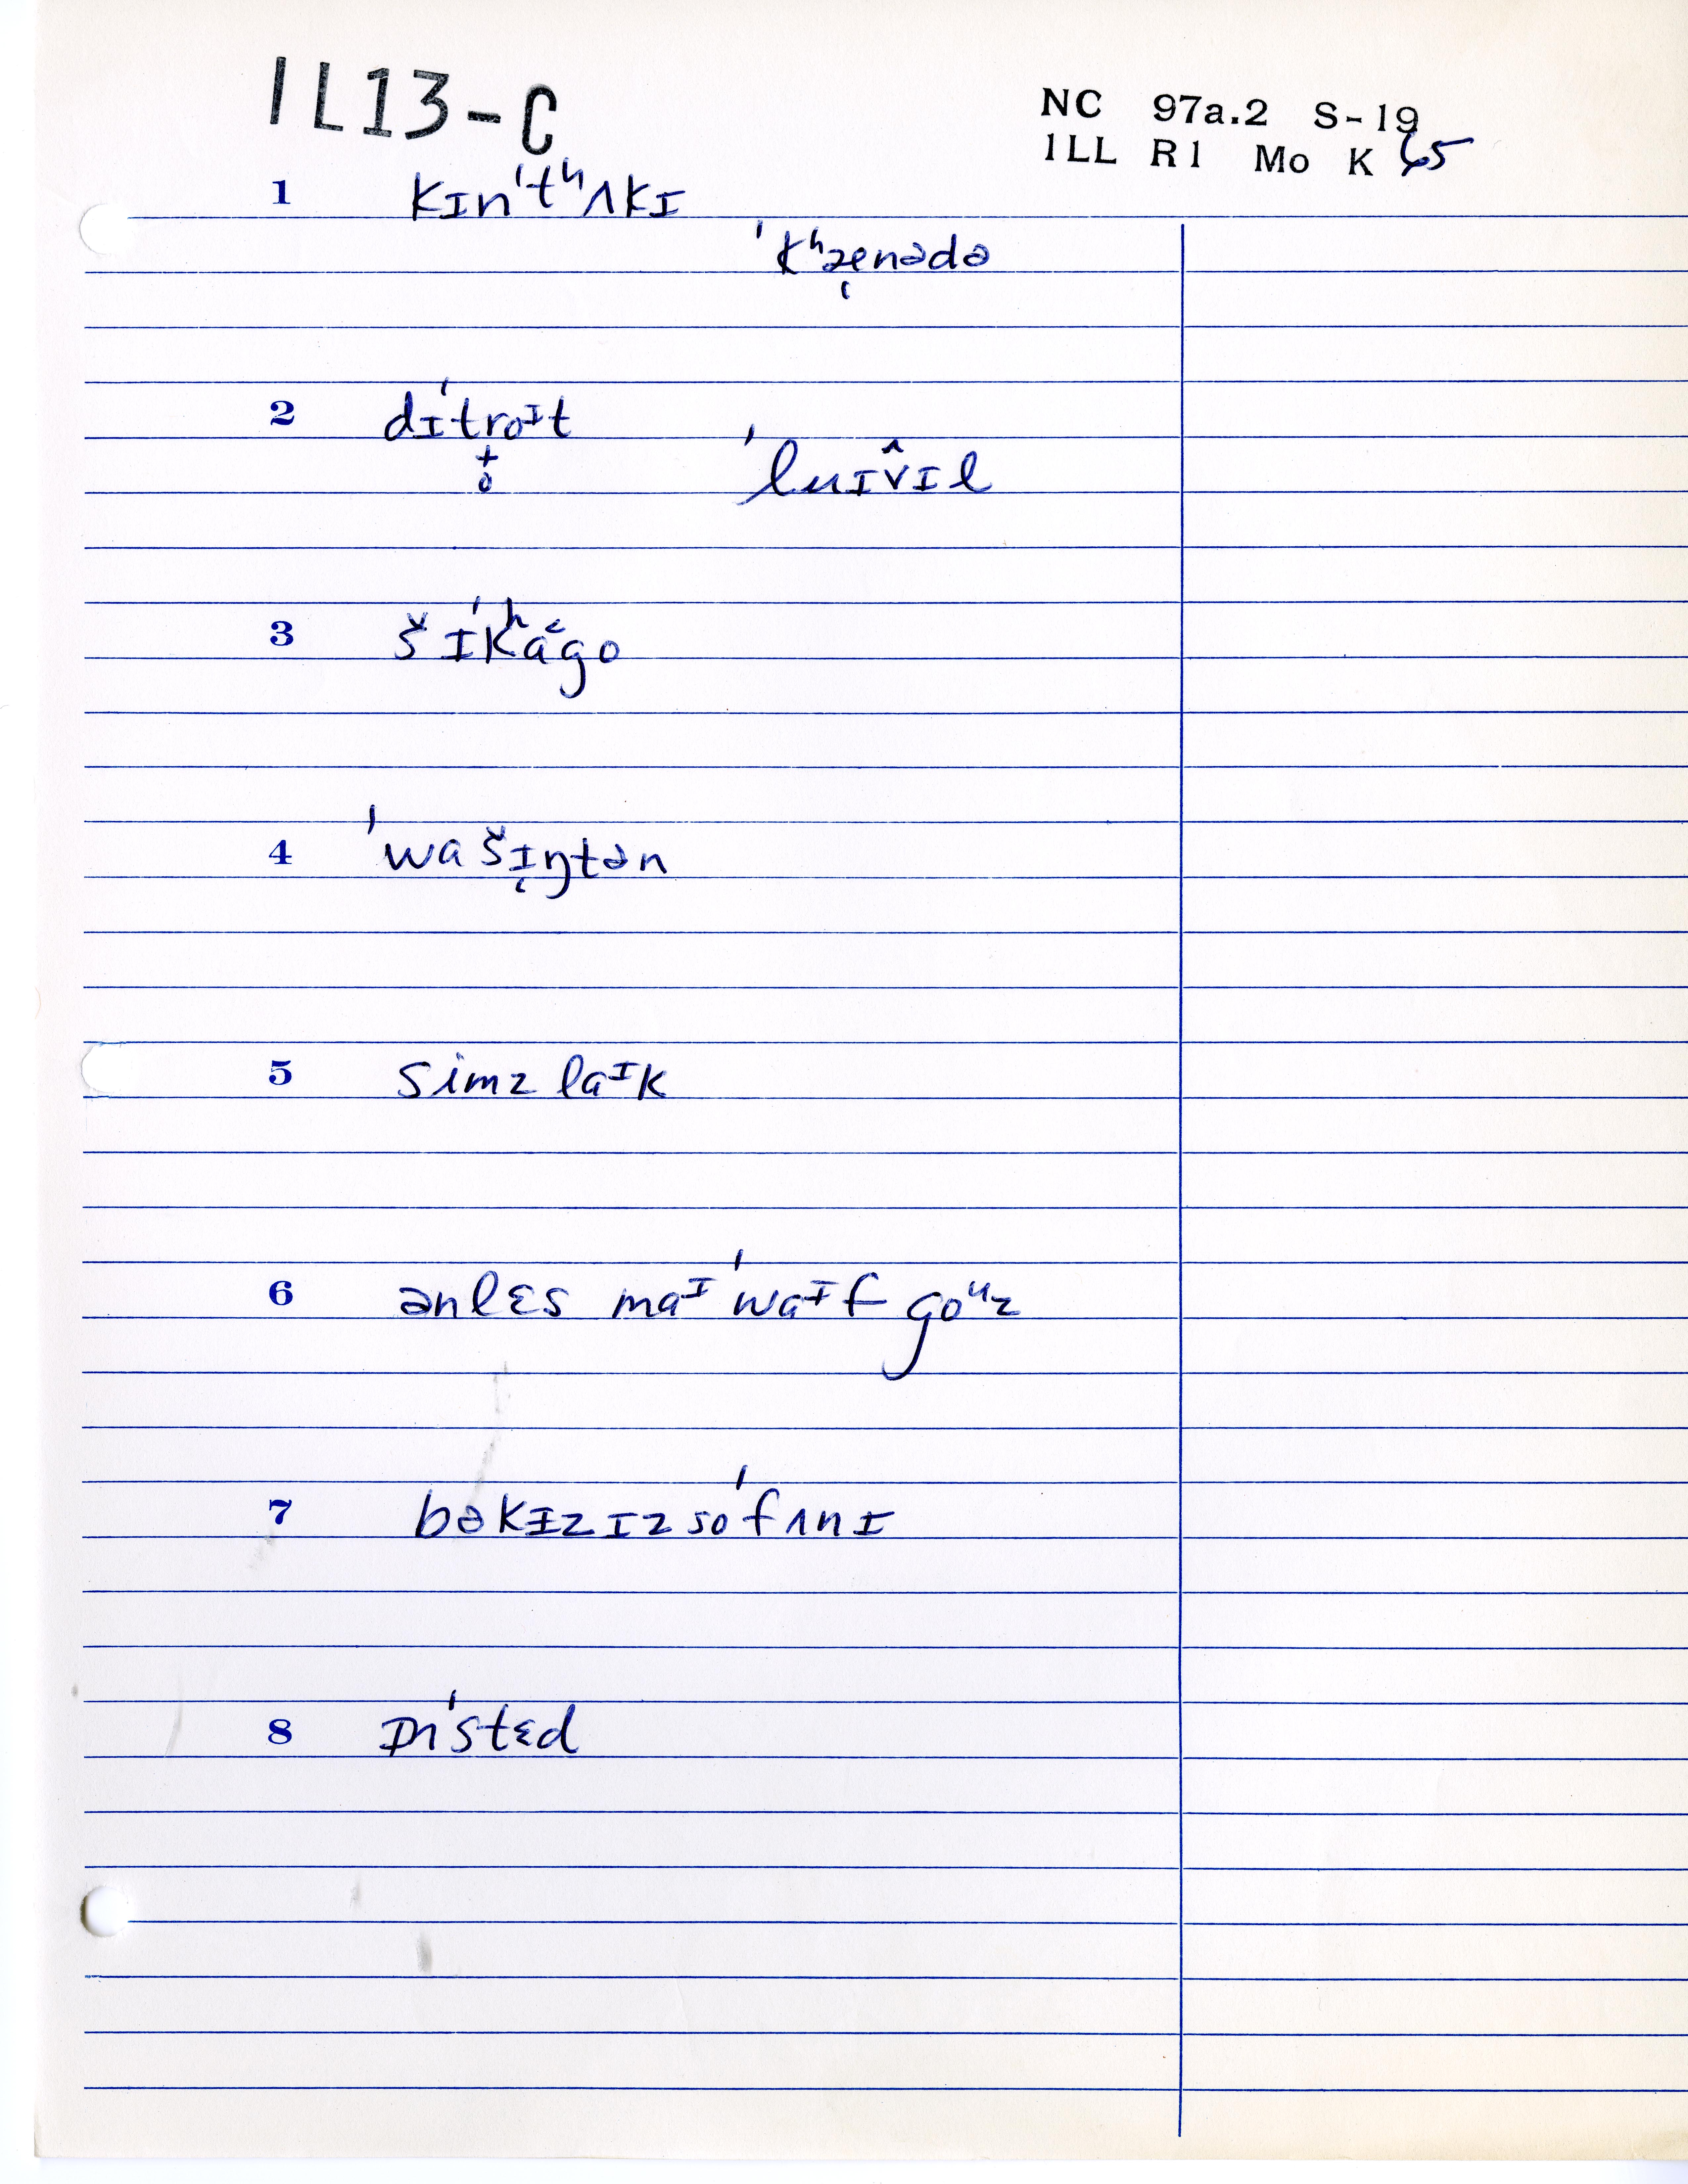 IL13-C
NC 97a.2 S-19
ILL R1 Mo K 65
1 kɪn'tʰʌkɪ
'kʰæ̜nədə
2 dɪ'troᶦt
'luɪv̂ɪl
3 šɪ'kʰa˂go
4 'wašɪ̜ŋtən
5 simz laᶦk
6 ənlɛs maᶦ 'waᶦf goᵘz
7 bəkɪzɪzso'fʌnɪ
8 ɪn'stɛd